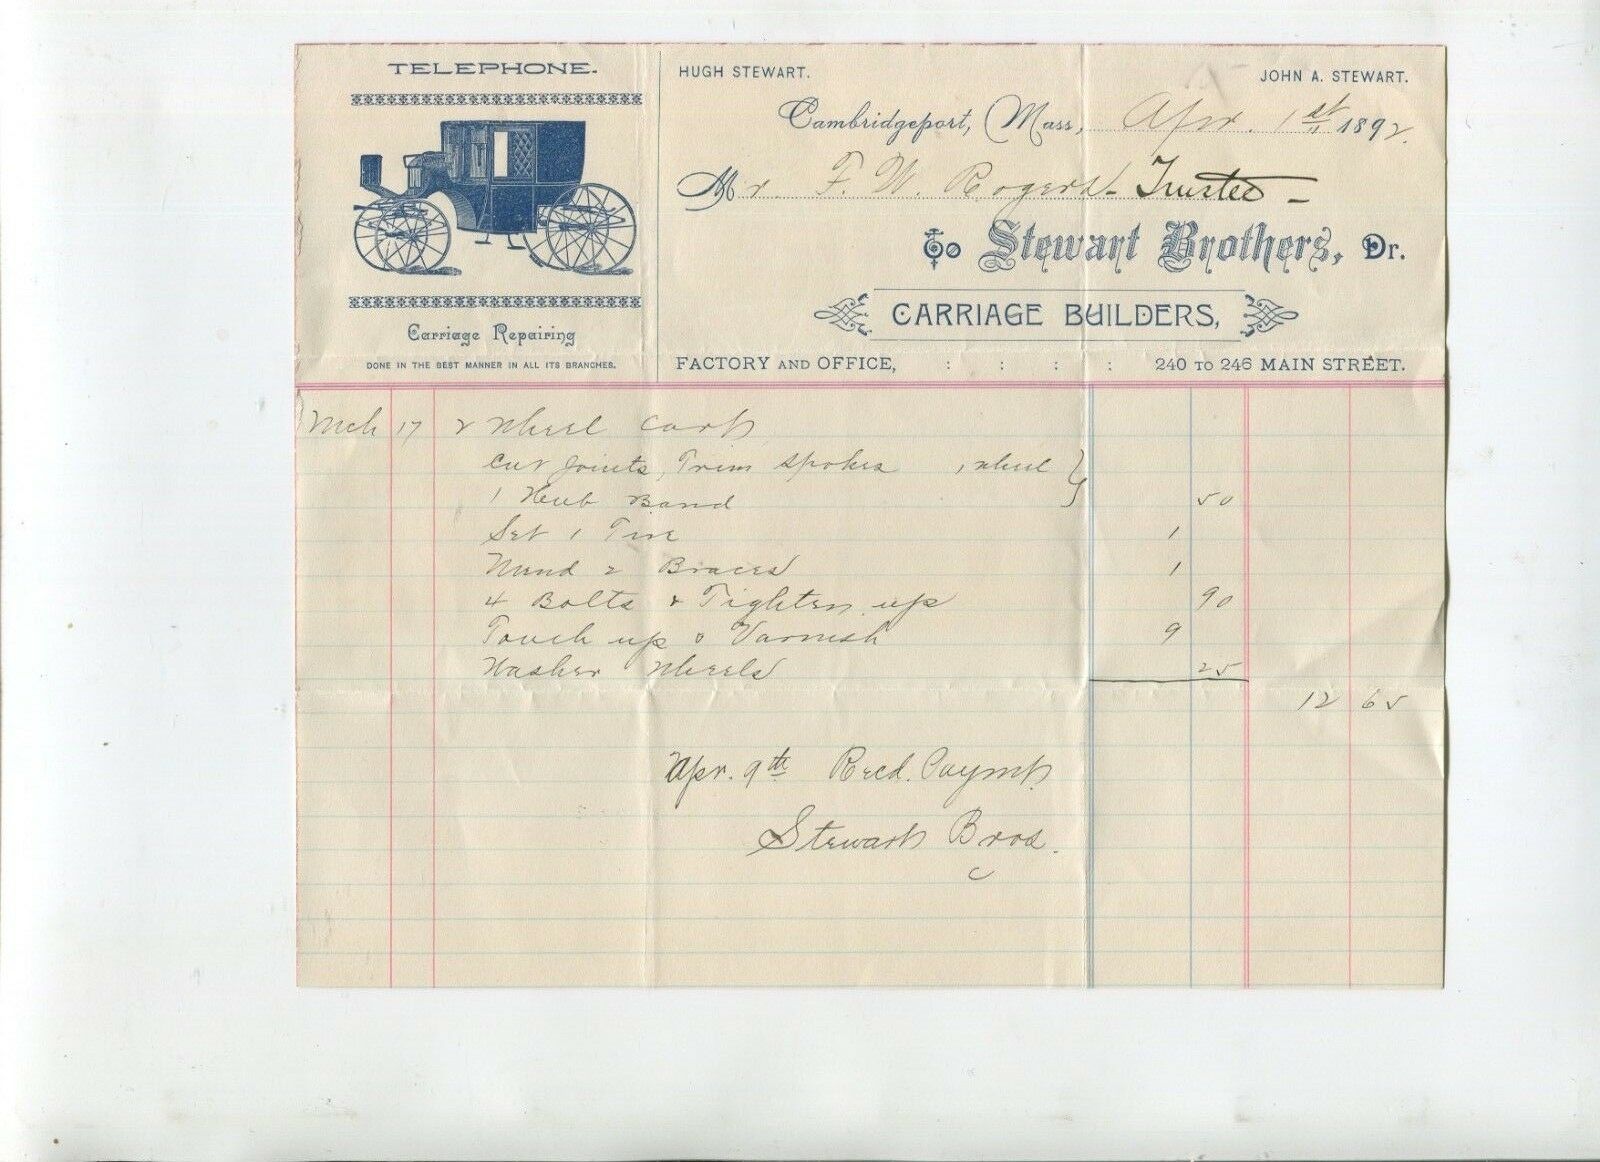 TELEPHONE.
Carriage Repairing
DONE IN THE BEST MANNER IN ALL ITS BRANCHES.
HUGH STEWART. JOHN A. STEWART.
Cambridgeport, Mass, Apr. 1st 1892.
Mr. F. W. Rogers - Trustee -
To Stewart Brothers, Dr.
CARRIAGE BUILDERS,
FACTORY AND OFFICE, : : : : 240 TO 246 MAIN STREET.
Mch 17 2 Wheel Cart
Cut Joints, Trim Spokes 1 wheel }
1 Hub Band 50
Set 1 Tire 1
Mend 2 Braces 1
4 Bolts & Tighten up 90
Touch up & Varnish 9
Washer Wheels 25
12 65
Apr. 9th Recd. Paymt
Stewart Bros.